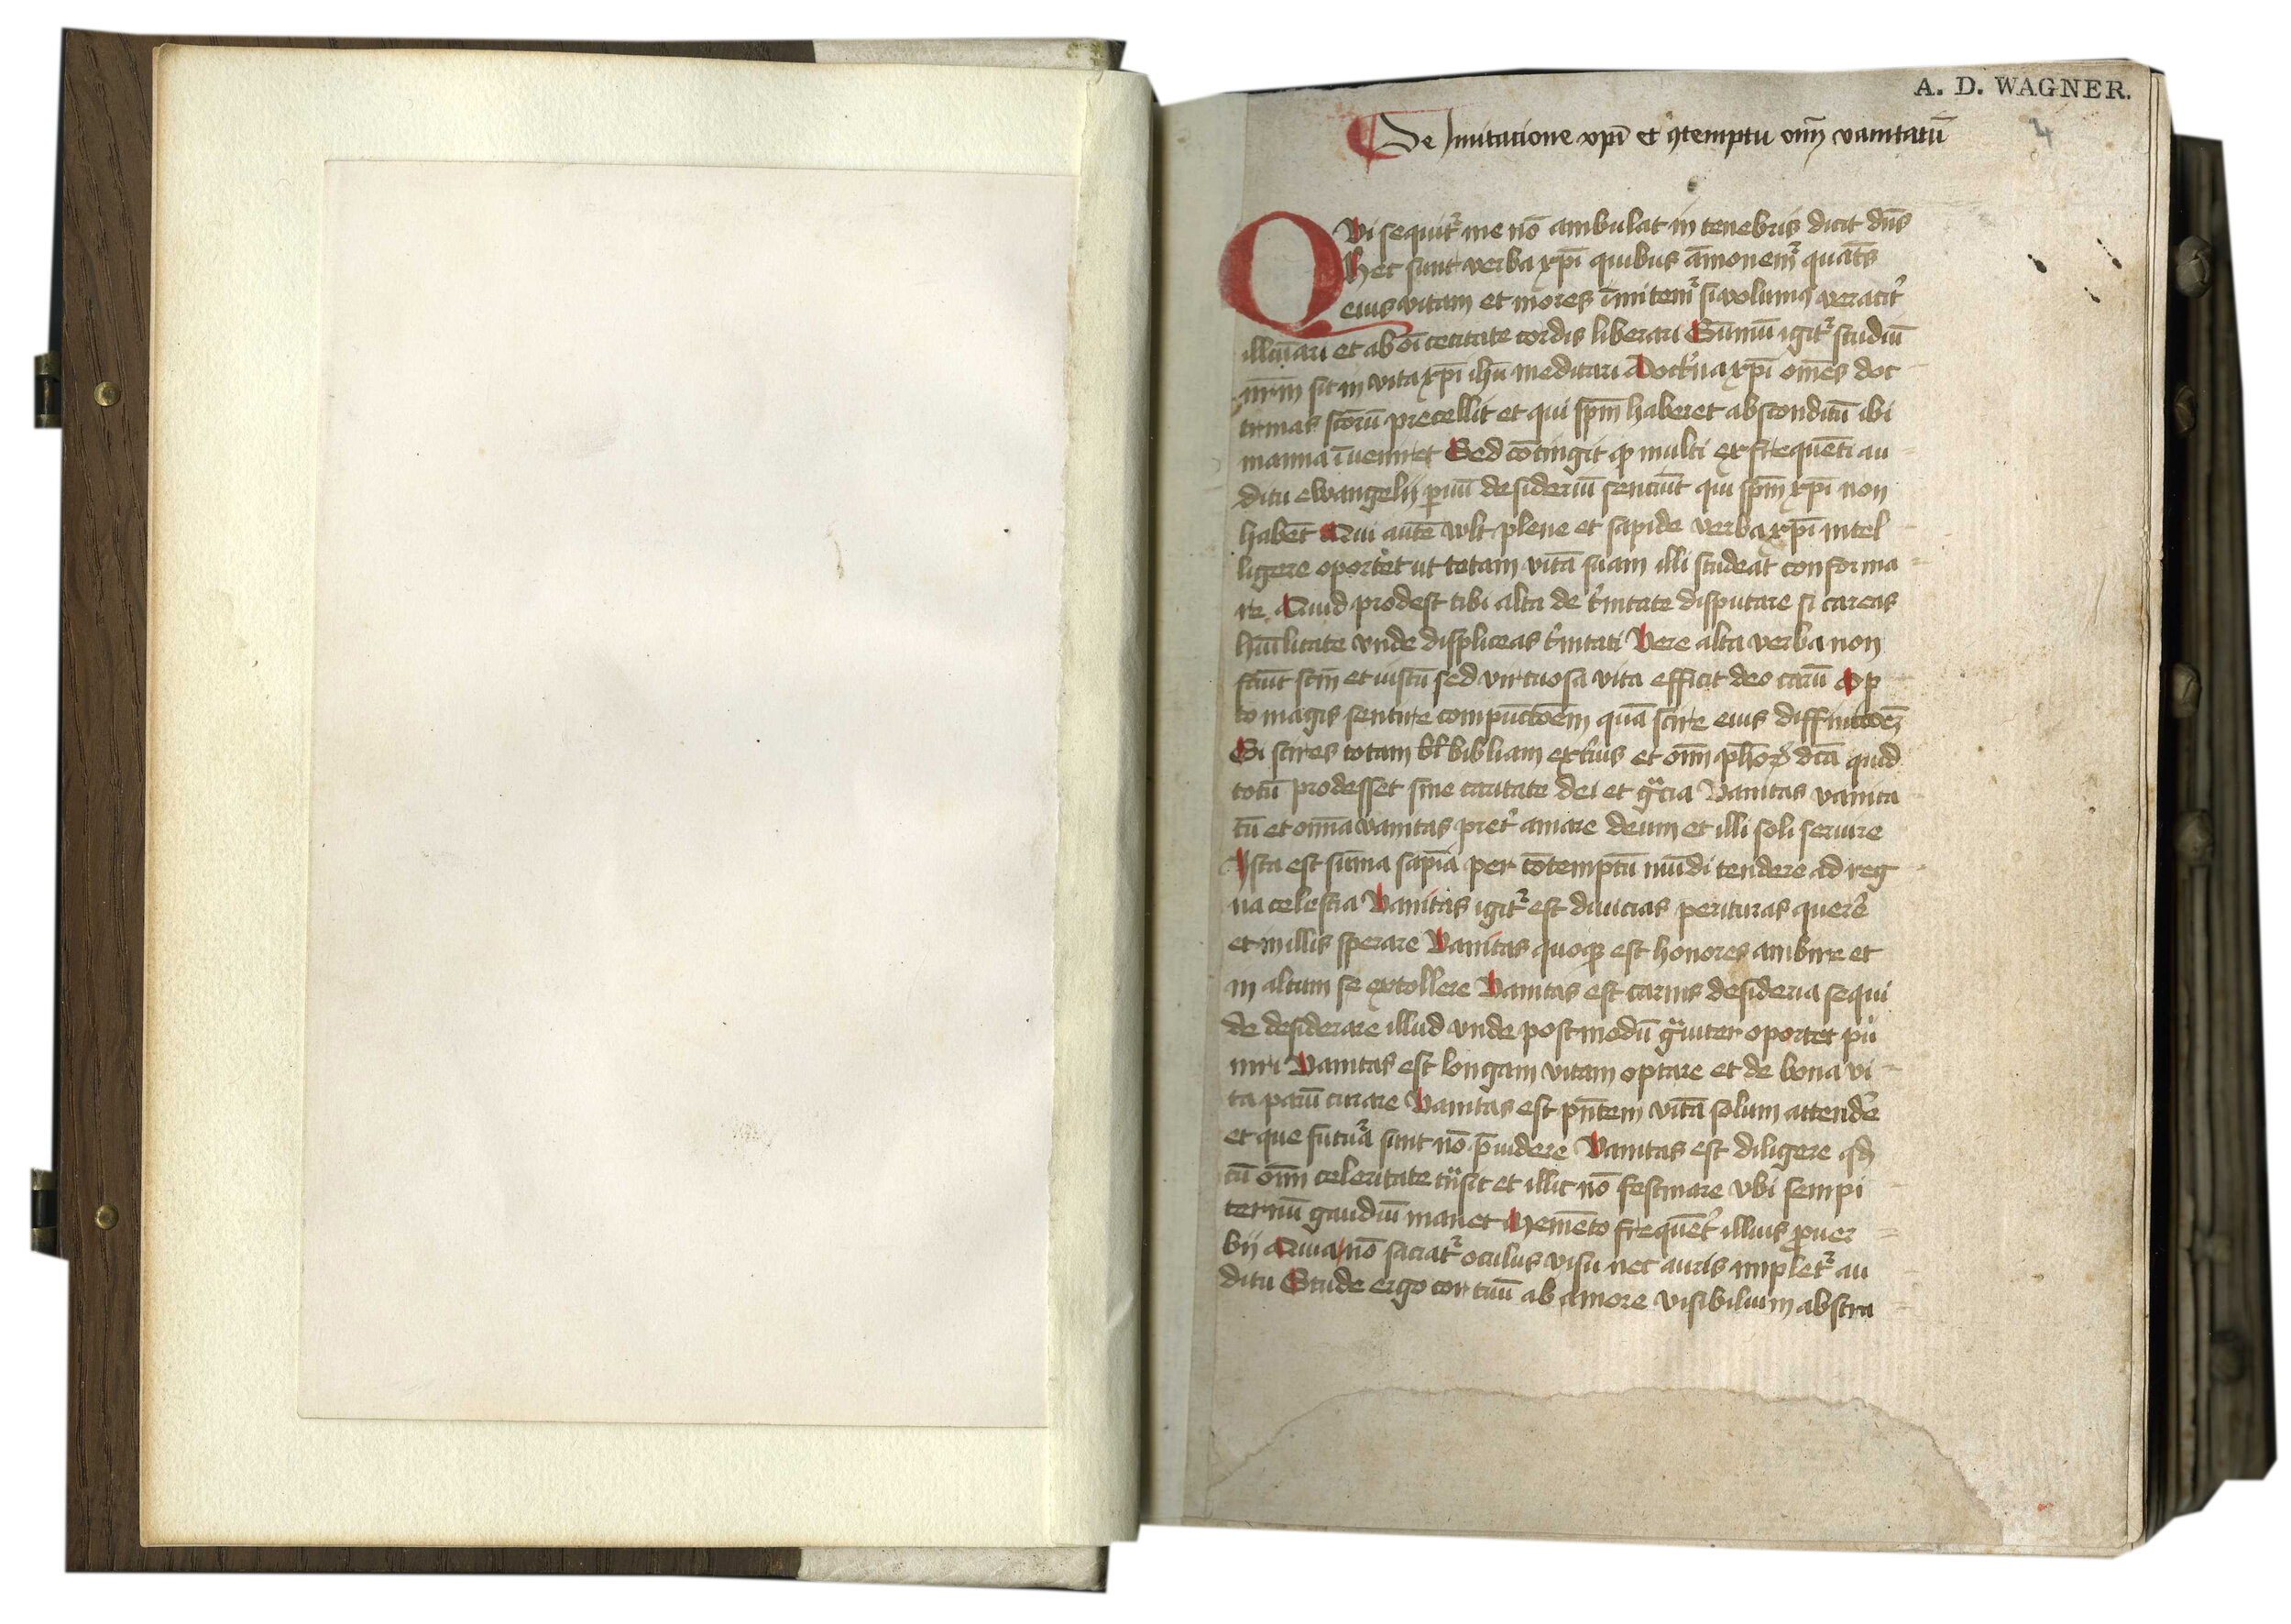 A. D. WAGNER.
De Imitatione xpi et ꝯtemptu om̄ vanitatū
4
QVi sequit᷑ me nō ambulat in tenebris dicit dn̄s
hec sunt verba xp̄i quibus āmonem᷑ quat̄s
eius vitam et mores īmitem᷑ si volumꝯ veracit᷑
illuīari et ab oī cecitate cordis liberari Sūmū igit᷑ studiū
nr̄m sit in vita xp̄i ih̄u meditari Doct᷑na xp̄i om̄es doc
trinas scōrū precellit et qui sp̄m haberet absconditū ibi
manna īueniret Sed cōtingit ꝙ multi ex frequēti au
ditu ewangelij ꝑuū desideriū senciūt qui sp̄m xp̄i non
habēt Qui autē wlt plene et sapide verba xp̄i intel
ligere oportet ut totam vitā suam illi studeat conforma
re. Quid prodest tibi alta de t᷑nitate disputare si careas
hūilitate vnde displiceas t᷑nitati Vere alta verba non
faciūt scm̄ et iustū sed virtuosa vita efficit deo carū Op
to magis sentire compūctōem quā scire eius diffinitōeꝫ
Si scires totam bibliam ext᷑ius et om̄ ph̄oꝝ dcā quid
totū prodesset sine caritate dei et gͣcia Vanitas vanita
tū et om̄ia vanitas pret᷑ amare deum et illi soli seruire
Ista est sūma sapīa per cōtemptū mūdi tendere ad reg
na celestia Vanitas igit᷑ est diuicias perituras querē
et in illis sperare Vanitas quoqꝫ est honores ambire et
in altum se extollere Vanitas est carnis desideria sequi
de desiderare illud vnde postmodū gͣuiter oportet pu
niri Vanitas est longam vitam optare et de bona vi
ta parū curare Vanitas est pn̄tem vitā solum attendē
et que futura sunt nō p̄uidere Vanitas est diligere qd̄
cū om̄i celeritate tͣnsit et illic nō festinare vbi sempi
ternū gaudiū manet Memēto frequēt᷑ illius ꝓuer
bij Quia nō saciat᷑ oculus visu nec auris implet᷑ au
ditu Stude ergo cor tuū ab amore visibilium abstra